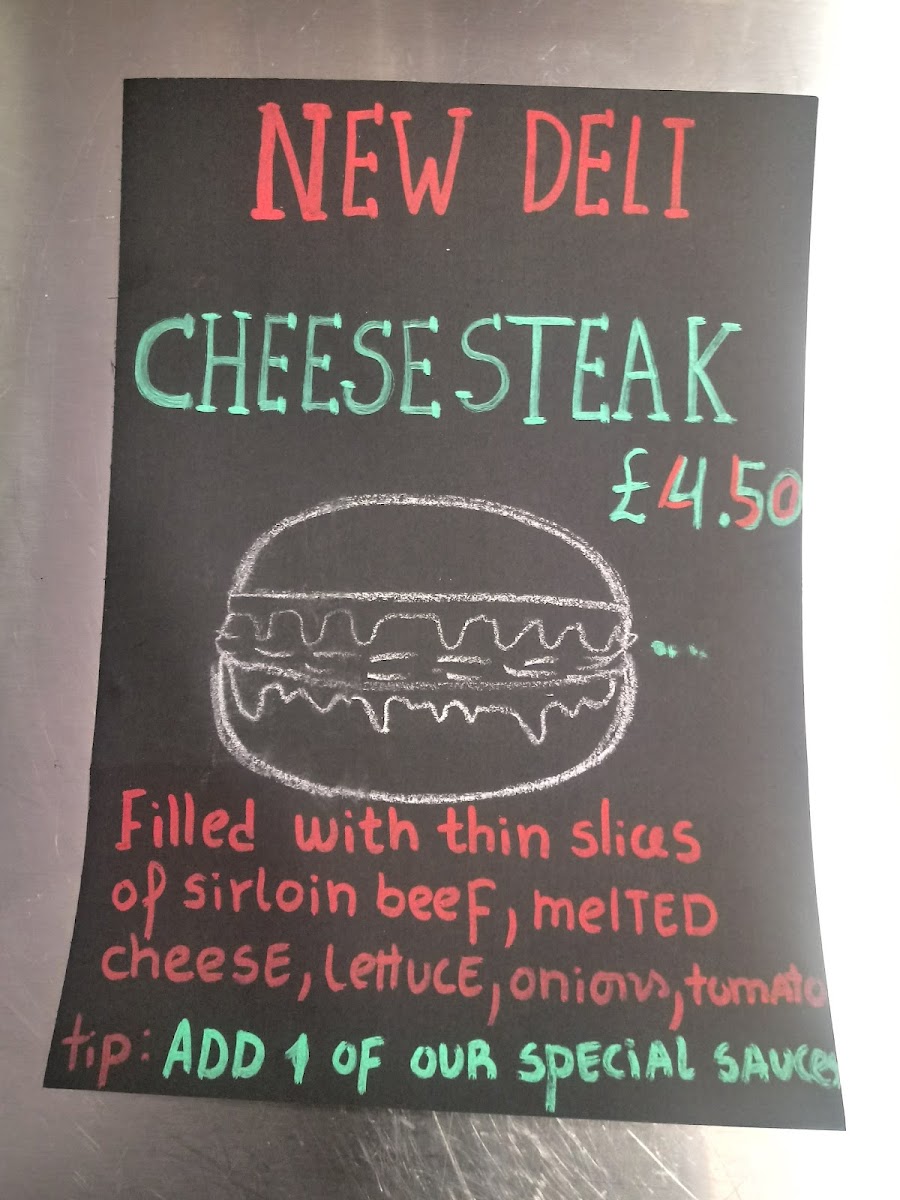 NEW DELI
CHEESESTEAK
£4.50
Filled with thin slices
of sirloin beef, melTED
cheesE, LettucE, onions, tomato
tip: ADD 1 OF OUR SPECiAL SAUCes